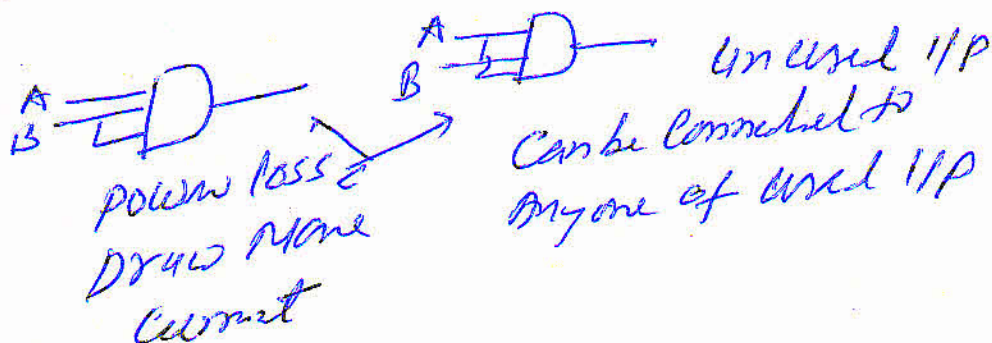 A
B
power loss
Draw More
Current
A
B
Unused I/P
Can be Connected to
Anyone of used I/P